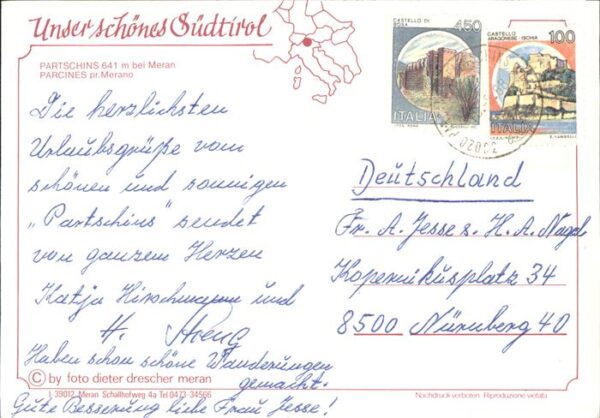 Unser schönes Südtirol
PARTSCHINS 641 m bei Meran
PARCINES pr. Merano
CASTELLO DI
BOSA
450
ITALIA
CASTELLO
ARAGONESE - ISCHIA
100
ITALIA
Die herzlichsten
Urlaubsgrüße vom
schönen und sonnigen
„Partschins" sendet
von ganzem Herzen
Katja Hirschmann und
H.
Haben schon schöne Wanderungen
gemacht.
Gute Besserung liebe Frau Jesse!
Deutschland
Fr. A. Jesse s. H. A. Nagel
Kopernikusplatz 34
8500 Nürnberg 40
© by foto dieter drescher meran
I. 39012 Meran Schallhofweg 4a Tel. 0473-34566
Nachdruck verboten Riproduzione vietata